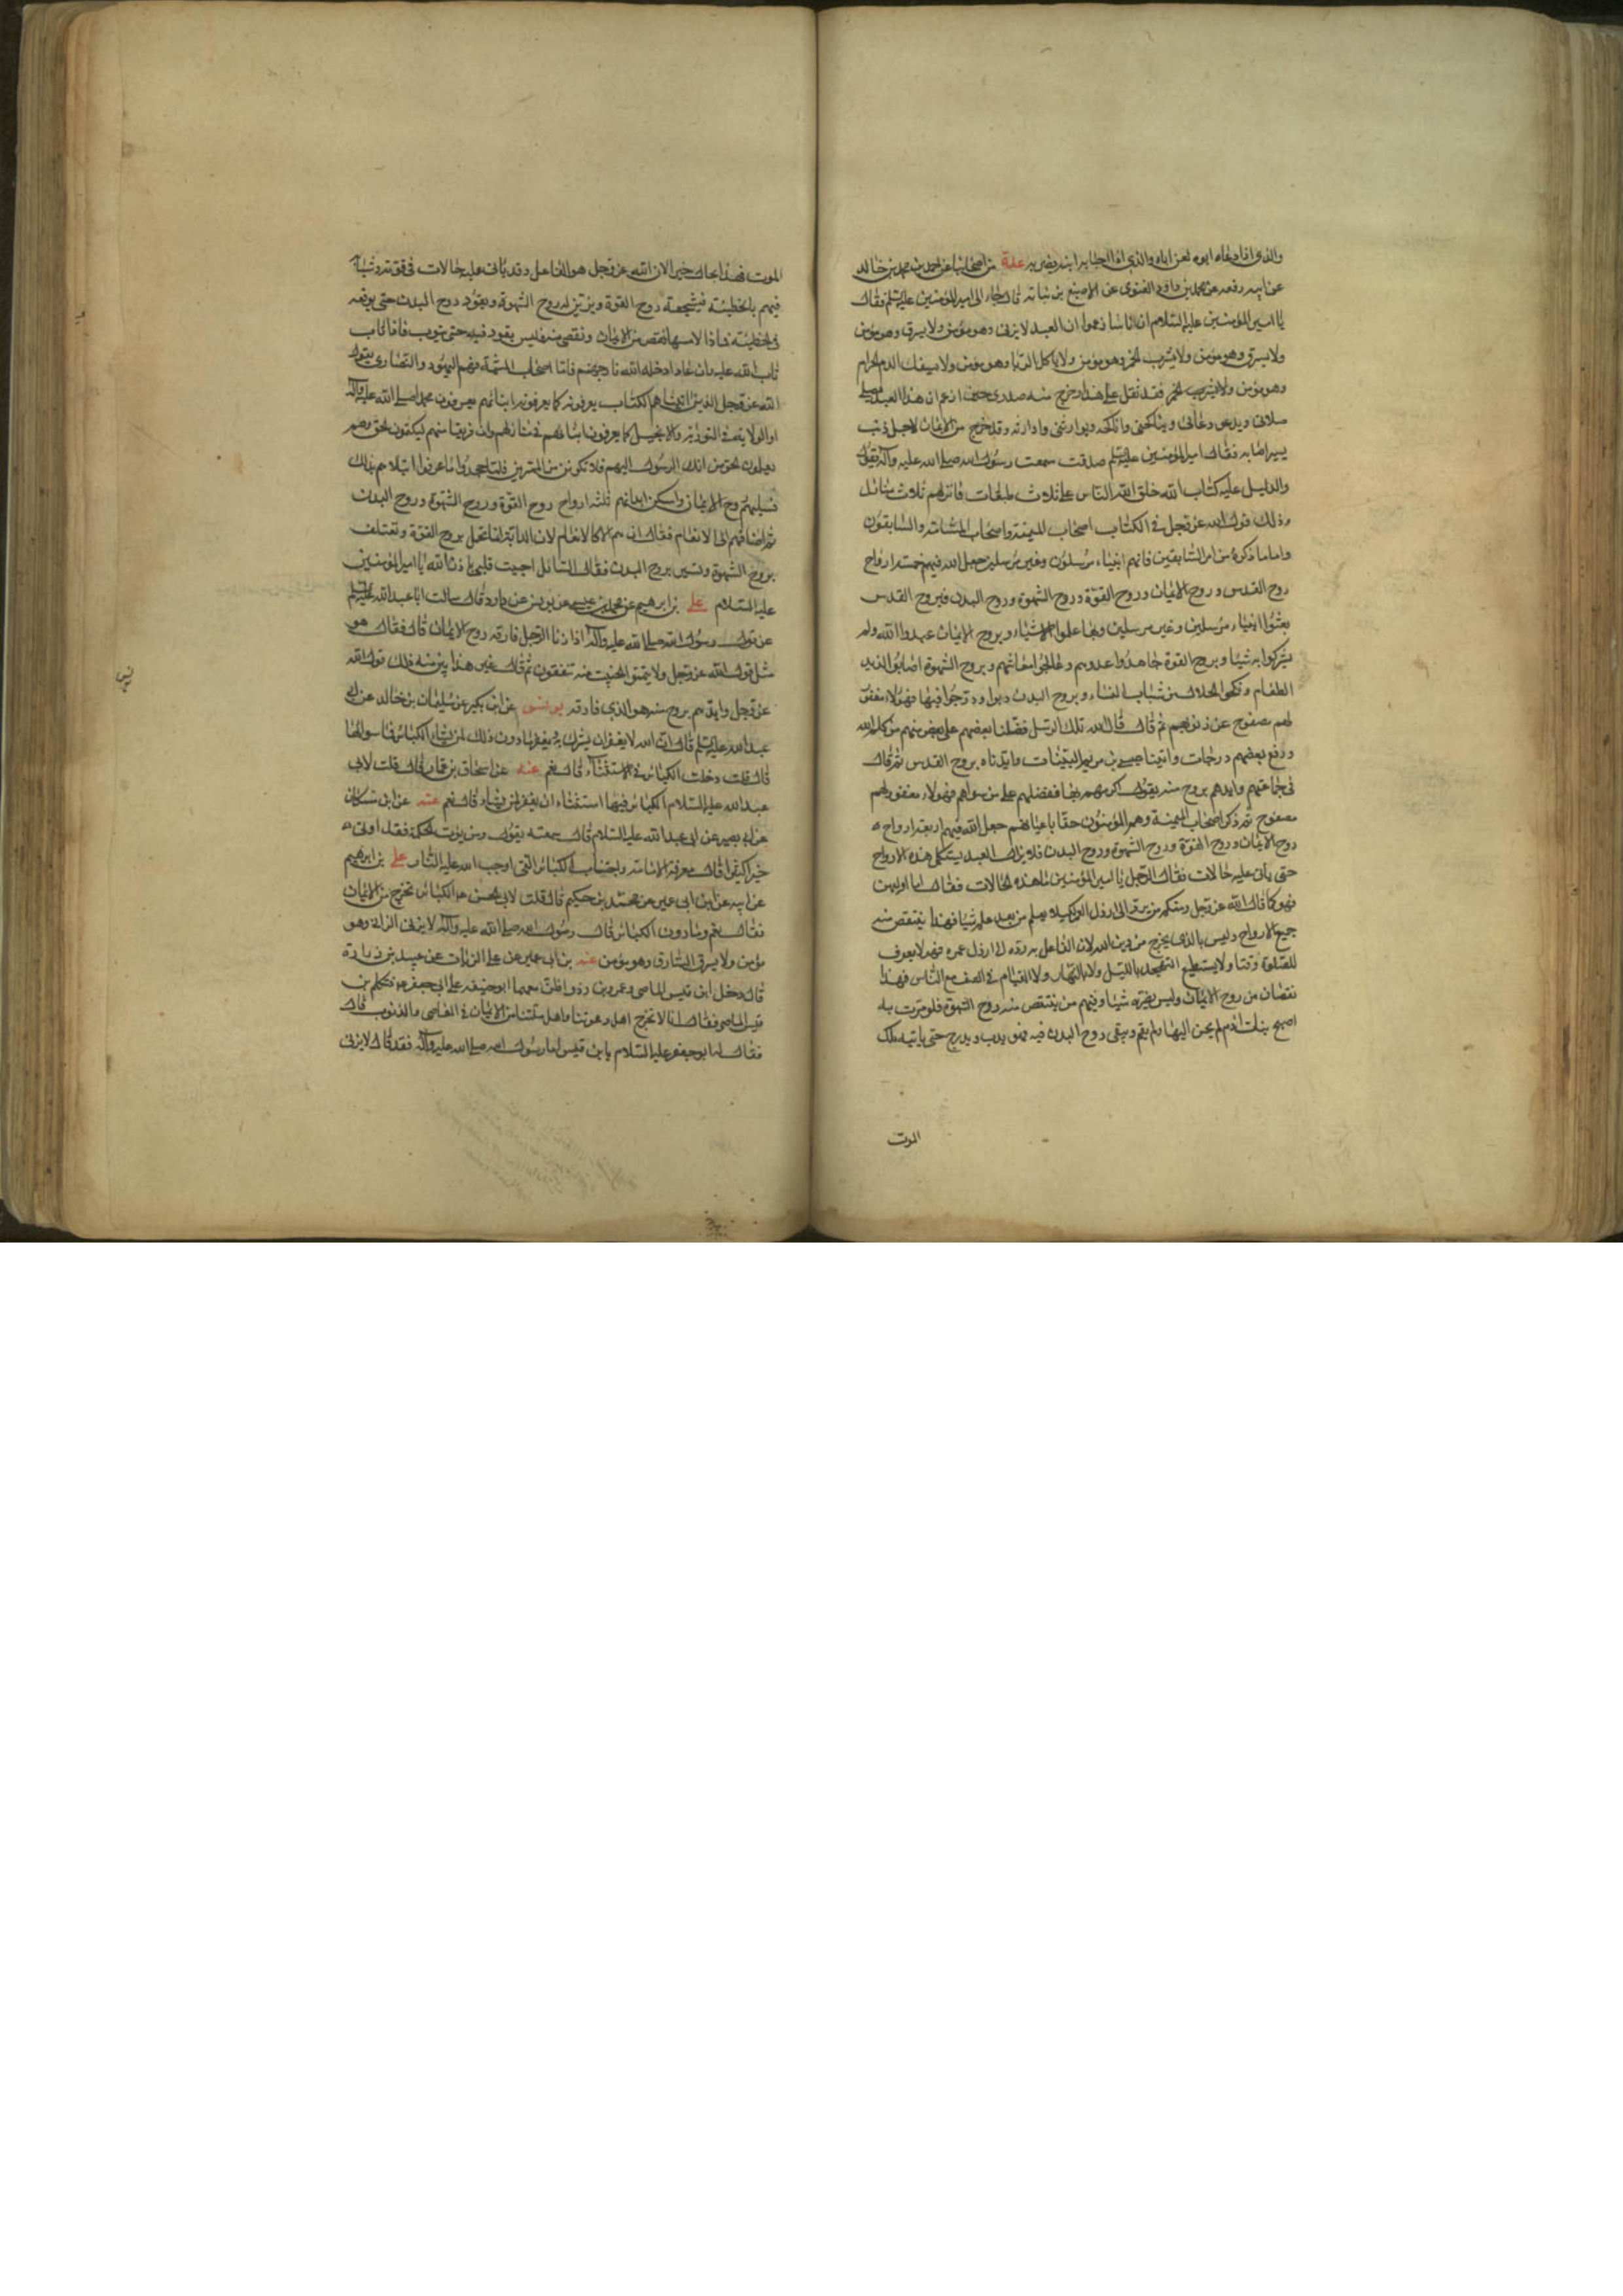 والذي اذا دعاه ابوه لعن اباه والذي اذا اجابه ابنه يضربه عدة من اصحابنا عن احمد بن محمد بن خالد
عن ابيه رفعه عن محمد بن داود الغنوى عن الاصبغ بن نباته قال جاء رجل الى امير المؤمنين عليه السلم فقال
يا امير المؤمنين عليه السلام ان اناسا زعموا ان العبد لا يزنى وهو مؤمن ولا يسرق وهو مؤمن
ولا يسرق وهو مؤمن ولا يشرب الخمر وهو مؤمن ولا ياكل الربا وهو مؤمن ولا يسفك الدم الحرام
وهو مؤمن ولا يشرب الخمر فقد ثقل على هذا وحرج منه صدرى حين ازعم ان هذا العبد يصلى
صلاتى ويدعو دعائى ويناكحنى واناكحه ويوارثنى واوارثه وقد خرج من الايمان لاجل ذنب
يسير اصابه فقال امير المؤمنين عليه السلم صدقت سمعت رسول الله صلى الله عليه وآله يقول
والدليل عليه كتاب الله خلق الله الناس على ثلاث طبقات وانزلهم ثلاث منازل
وذلك قول الله عز وجل فى الكتاب اصحاب الميمنة واصحاب المشأمة والسابقون
واما ما ذكره من امر السابقين فانهم انبياء مرسلون وغير مرسلين جعل الله فيهم خمسة ارواح
روح القدس وروح الايمان وروح القوة وروح الشهوة وروح البدن فبروح القدس
بعثوا انبياء مرسلين وغير مرسلين وبها علموا الاشياء وبروح الايمان عبدوا الله ولم
يشركوا به شيئا وبروح القوة جاهدوا عدوهم وعالجوا معاشهم وبروح الشهوة اصابوا لذيذ
الطعام ونكحوا الحلال من شباب النساء وبروح البدن دبوا ودرجوا فيها فهؤلاء مغفور
لهم مصفوح عن ذنوبهم ثم قال قال الله تلك الرسل فضلنا بعضهم على بعض منهم من كلم الله
ورفع بعضهم درجات واتينا عيسى بن مريم البينات وايدناه بروح القدس ثم قال
فى جماعتهم وايدهم بروح منه يقول اكرمهم بها ففضلهم على من سواهم فهؤلاء مغفور لهم
مصفوح ثم ذكر اصحاب الميمنة وهم المؤمنون حقا باعيانهم جعل الله فيهم اربعة ارواح
روح الايمان وروح القوة وروح الشهوة وروح البدن فلا يزال العبد يستكمل هذه الارواح
حتى يأتى عليه حالات فقال الرجل يا امير المؤمنين ما هذه الحالات فقال اما اوليهن
فهو كما قال الله عز وجل ومنكم من يرد الى ارذل العمر لكيلا يعلم من بعد علم شيئا فهذا ينتقص منه
جميع الارواح وليس بالذى يخرج من دين الله لان الفاعل به رده الى ارذل عمره فهو لا يعرف
للصلوة وقتا ولا يستطيع التهجد بالليل ولا بالنهار ولا القيام فى الصف مع الناس فهذا
نقصان من روح الايمان وليس يضره شيئا وفيهم من ينتقص منه روح الشهوة فلو مرت به
اصبح بنات آدم لم يحن اليها ولم يقم ويبقى روح البدن فيه فهو يدب ويدرج حتى ياتيه ملك
الموت
الموت فهذا بحال خير لان الله عز وجل هو الفاعل وقد يأتى عليه حالات فى قوته وشبابه
فيهم بالخطيئة فيشجعه روح القوة ويزين له روح الشهوة ويقوده روح البدن حتى يوقعه
فى الخطيئة فاذا لامسها نقص من الايمان ونقصى منه فليس يعود فيه حتى يتوب فاذا تاب
تاب الله عليه وان عاد ادخله الله نار جهنم فاما اصحاب المشأمة فهم اليهود والنصارى يقول
الله عز وجل الذين اتيناهم الكتاب يعرفونه كما يعرفون ابنائهم يعرفون محمدا صلى الله عليه وآله
والولاية فى التورية والانجيل كما يعرفون ابنائهم فى منازلهم وان فريقا منهم ليكتمون الحق وهم
يعلمون الحق من ربك انك الرسول اليهم فلا تكونن من الممترين فلما جحدوا ما عرفوا ابتلاهم بذلك
فسلبهم روح الايمان واسكن ابدانهم ثلثه ارواح روح القوة وروح الشهوة وروح البدن
ثم اضافهم الى الانعام فقال ان هم الا كالانعام لان الدابة انما تحمل بروح القوة وتعتلف
بروح الشهوة وتسير بروح البدن فقال السائل احييت قلبى باذن الله يا امير المؤمنين
عليه السلام على بن ابرهيم عن محمد بن عيسى عن يونس عن داود قال سالت ابا عبد الله عليه السلم
عن قول رسول الله صلى الله عليه وآله اذا زنا الرجل فارقه روح الايمان قال فقال هو
مثل قول الله عز وجل ولا تيمموا الخبيث منه تنفقون ثم قال غير هذا ابين منه ذلك قول الله
عز وجل وايدهم بروح منه هو الذى فارقه يونس عن ابن بكير عن سليمان بن خالد عن ابى
عبد الله عليه السلم قال ان الله لا يغفر ان يشرك به ويغفر ما دون ذلك لمن يشاء الكبائر فما سواها
قال قلت دخلت الكبائر فى الاستثناء قال نعم عنه عن اسحاق بن عمار قال قلت لابى
عبد الله عليه السلام الكبائر فيها استثناء ان يغفر لمن يشاء قال نعم عنه عن ابن مسكان
عن ابى بصير عن ابى عبد الله عليه السلام قال سمعته يقول ومن يؤت الحكمة فقد اوتى
خيرا كثيرا قال معرفة الامام واجتناب الكبائر التى اوجب الله عليها النار على بن ابرهيم
عن ابيه عن ابن ابى عمير عن محمد بن حكيم قال قلت لابى الحسن ع الكبائر تخرج من الايمان
فقال نعم وما دون الكبائر قال رسول الله صلى الله عليه وآله لا يزنى الزانى وهو
مؤمن ولا يسرق السارق وهو مؤمن عنه بن ابى عمير عن على الزيات عن عبيد بن زرارة
قال دخل ابن قيس الماصر وعمرو بن ذر واظن معهما ابو حنيفه على ابى جعفر ع فتكلم بن
قيس الماصر فقال انا لا نخرج اهل دعوتنا واهل ملتنا من الايمان فى المعاصى والذنوب قال
فقال له ابو جعفر عليه السلام يا بن قيس اما رسول الله صلى الله عليه وآله فقد قال لا يزنى